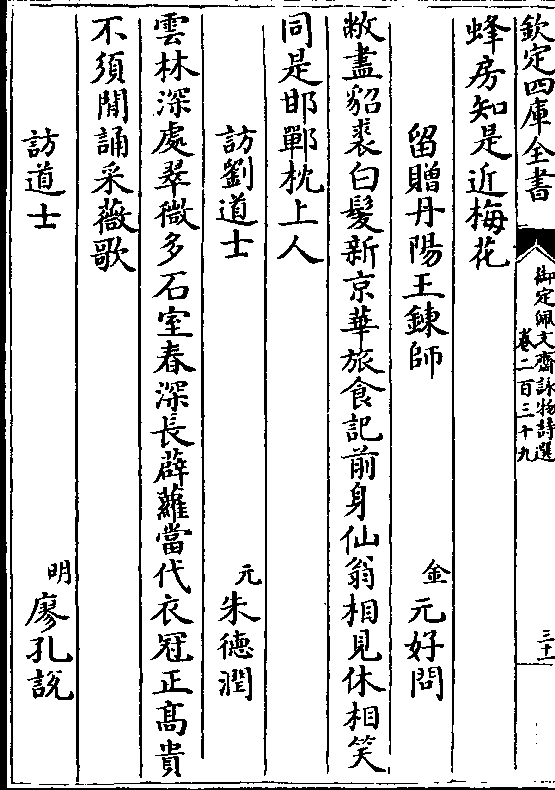 欽定四庫全書
御定佩文齋詠物詩選
卷二百三十九
三十一
蜂房知是近梅花
留贈丹陽王鍊師
金 元好問
敝盡貂裘白髮新京華旅食記前身仙翁相見休相笑
同是邯鄲枕上人
訪劉道士
元 朱德潤
雲林深處翠微多石室春深長薜蘿當代衣冠正髙貴
不須閒誦采薇歌
訪道士
明 廖孔說